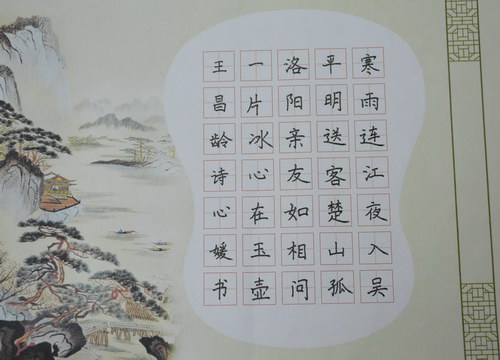 寒雨连江夜入吴
平明送客楚山孤
洛阳亲友如相问
一片冰心在玉壶
王昌龄诗心媛书